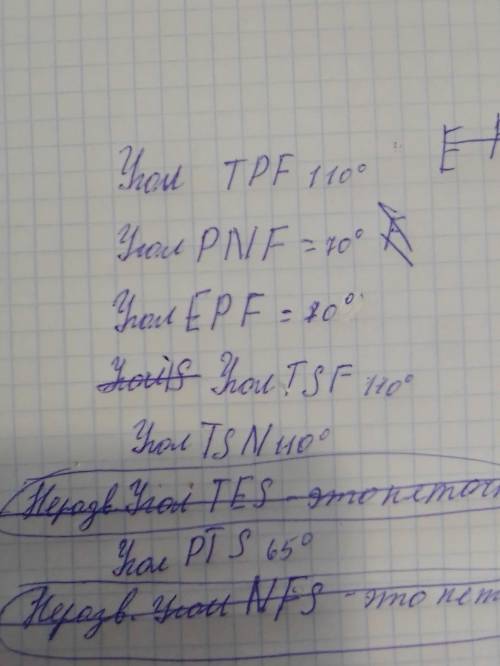 Угол TPF 110°
E
Угол PNF = 70°
Угол EPF = 70°
Угол TSF 110°
Угол TSN 110°
Неразв Угол TES - это
Угол PTS 65°
Неразв. Угол NFS - это